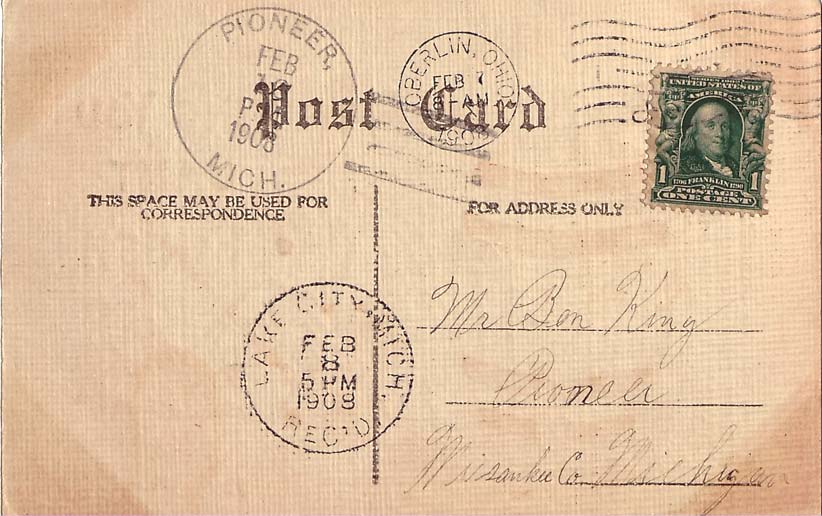 PIONEER,
FEB
P
1908
MICH.
OBERLIN, OHIO
FEB 7
8-AM
1908
Post Card
SERIES 1902
UNITED STATES OF
AMERICA
1706 FRANKLIN 1790
1 POSTAGE 1
ONE CENT
THIS SPACE MAY BE USED FOR
CORRESPONDENCE
FOR ADDRESS ONLY
LAKE CITY, MICH.
FEB
8
5 PM
1908
REC'D
Mr Ben King
Pioneer
Missaukee Co. Michigan